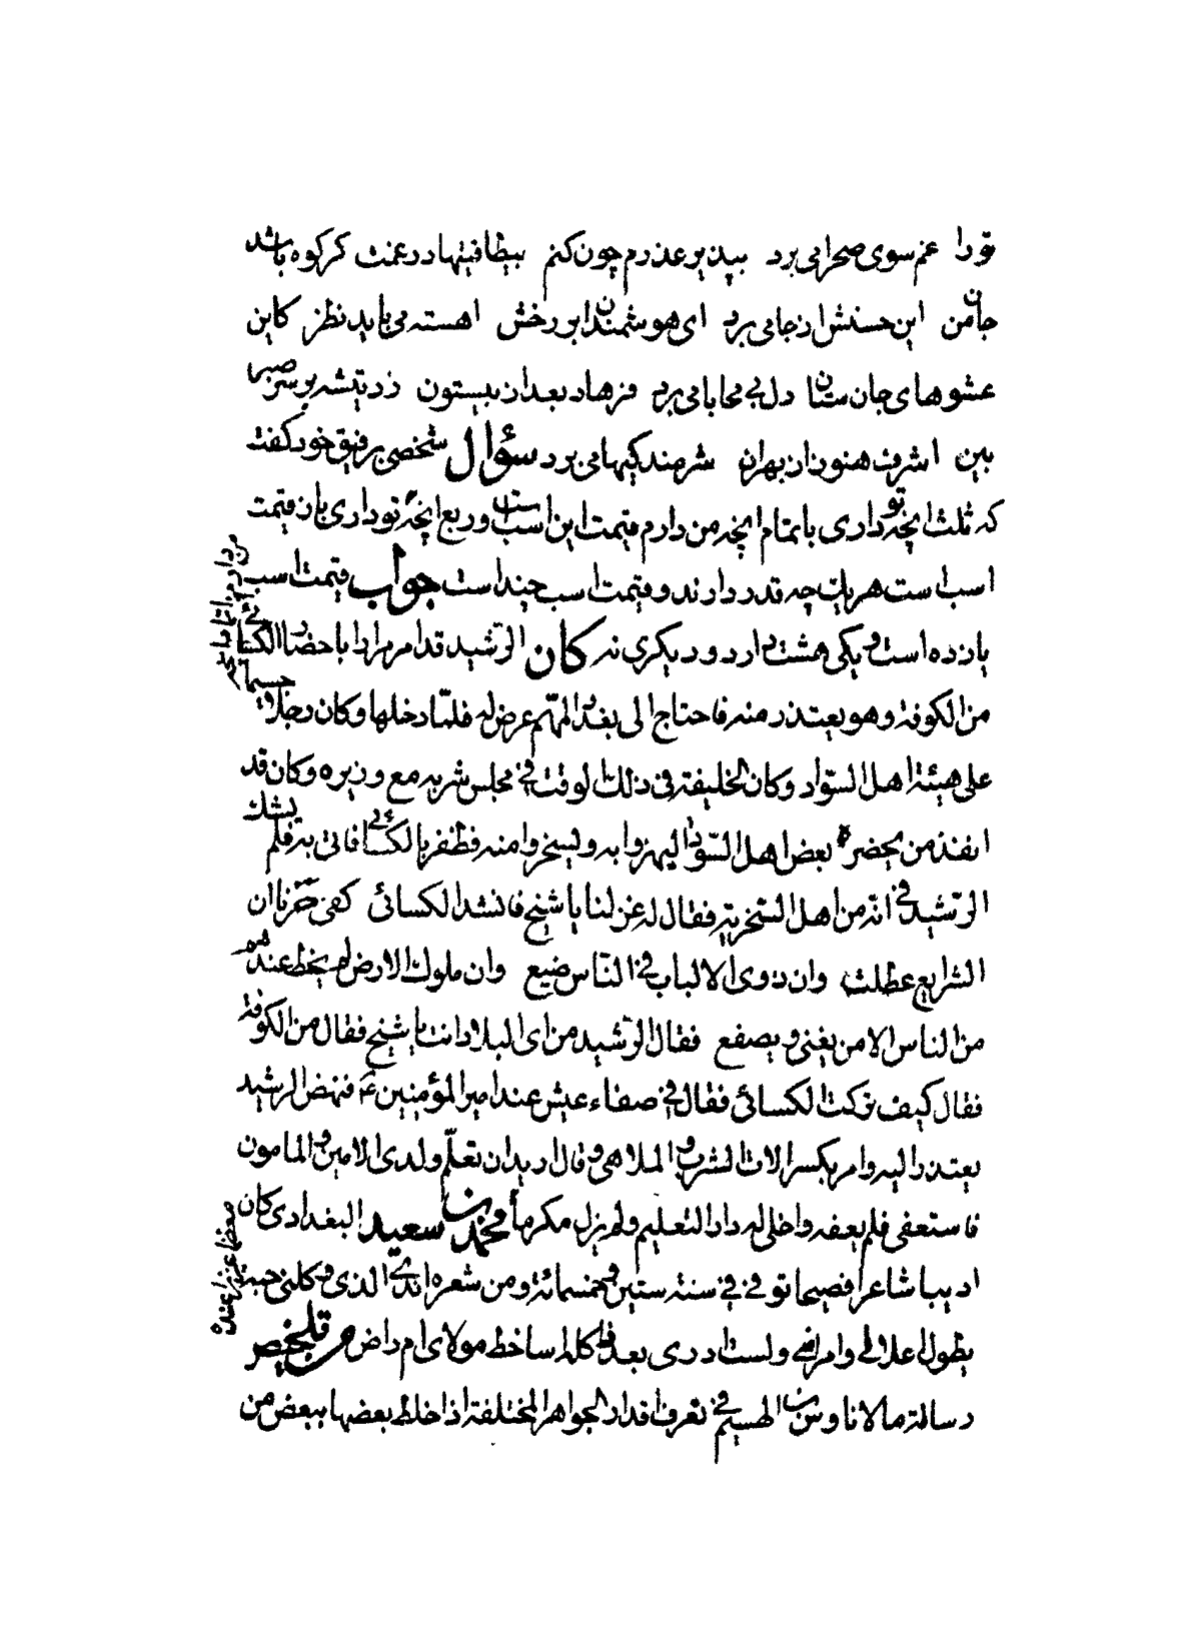 تو را غم سوی صحرا می برد بپذیر عذرم چون کنم بیطاقتیها در غمت کر کوه باشد
جان من این حسنش از جا می برد ای هوشمندان زین رخش اهسته می باید نظر کاین
عشوهای جان ستان دل بی محابا می برد فرهاد بعد از بیستون زد تیشه بر سر صبر
بین اشرف هنوز از بهر ان شرمندکیها می برد سؤال شخصی برفیق خود کفت
که ثلث انچه تو داری با تمام انچه من دارم قیمت این اسب است و ربع انچه تو داری بان قیمت
اسب است هریک چه قدر دارند و قیمت اسب چند است جواب قیمت اسب
یازده است و یکی هشت دارد و دیکری نه کان الرّشید قد امر مرارا باحضار الکسائی
من الکوفة وهو یعتذر منه فاحتاج الی بغداد لمهّم عرض له فلمّا دخلها وکان رجلا جسیما
علی هیئة اهل السّواد وکان الخلیفة فی ذلک الوقت فی مجلس شربه مع وزیره وکان قد
انفذ من یحضره بعض اهل السّواد الیهم لیهزوا به ولیسخروا منه فظفر بالکسائی فاتی به فلم یشک
الرّشید فی انّه من اهل السّخریة فقال له غن لنا یا شیخ فانشد الکسائی کفی حزنا ان
الشرایع عطلت وان ذوی الالباب فی النّاس ضیع وان ملوک الارض لم یحظ عندهم
من الناس الا من یغنی ویصفع فقال الرّشید من ای البلاد انت یا شیخ فقال من الکوفة
فقال کیف ترکت الکسائی فقال فی صفاء عیش عند امیر المؤمنین فنهض الرشید
یعتذر الیه وامر بکسر الات الشرب والملاهی وقال ارید ان تعلّم ولدی الامین والمامون
فاستعفی فلم یعفه واخلی له دار التعلیم ولم یزل مکرماً معظما عزیزا عنده محمد بن سعید البغدادی کان
ادیبا شاعرا فصیحا توفی فی سنة ستین وخمسمائة ومن شعره افدی الذی وکلنی حبه
بطول اعلالی وامراضی ولست ادری بعد ذا کله اساخط مولای ام راض من تلخیص
رسالة مالاناوس الی فی تعرف اقدار الجواهر المختلفة اذا خلط بعضها ببعض من